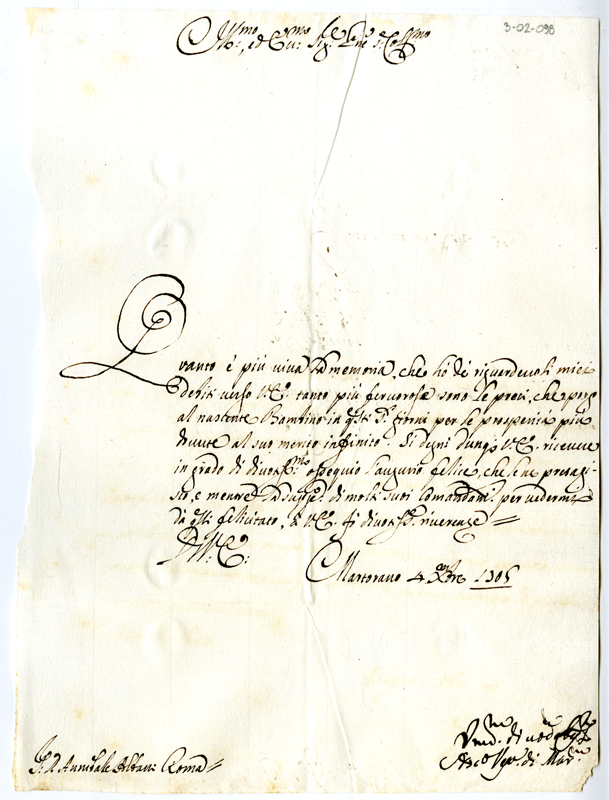 3-02-098
Ill:mo, ed Ecc:mo Sig:re
Quanto è più viva la memoria, che hò de' riguardevoli miei
debiti verso V.E. tanto più fervorose sono le preci, che porgo
al nascente Bambino in q'sti S. giorni per le prosperità più
dovute al suo merito infinito. Si degni dunq; V.E. ricevere
in grado di divotiss:mo ossequio l'augurio felice, che le ne presagi-
sco, e mentre la supp:co di molti suoi comandam:ti per vedermi
da q'sti felicitato, à V.E. fò divotiss:me riverenze
D. V. E.
Martorano 4 Xbre 1705
S. D. Annibale Albani Roma
Um:mo di
Vesc:o di Mar:no